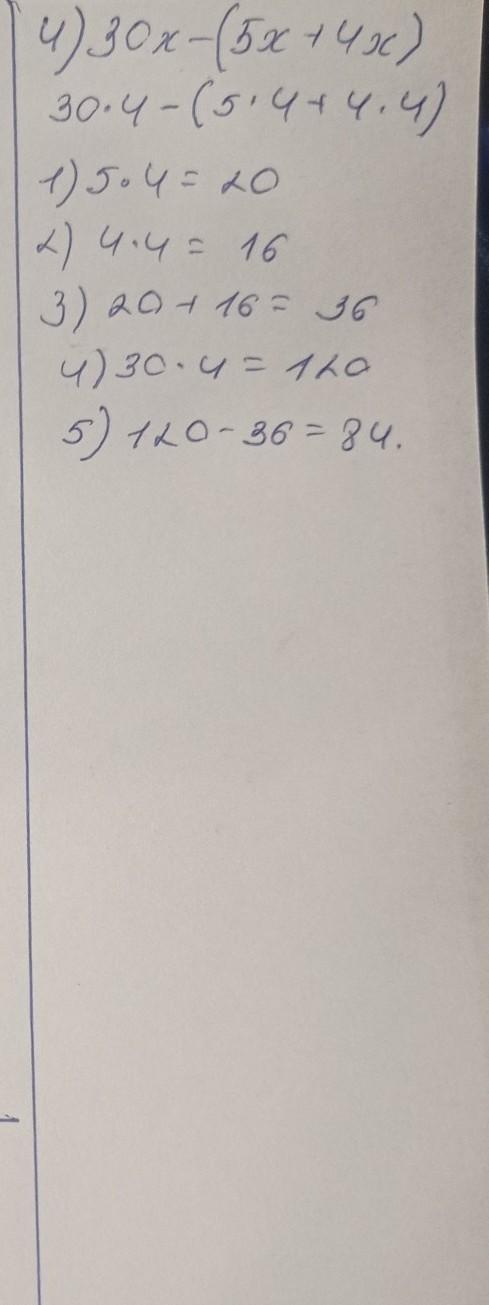 4) 30x-(5x+4x)
30·4-(5·4+4·4)
1) 5·4=20
2) 4·4= 16
3) 20+16= 36
4) 30·4=120
5) 120-36=84.